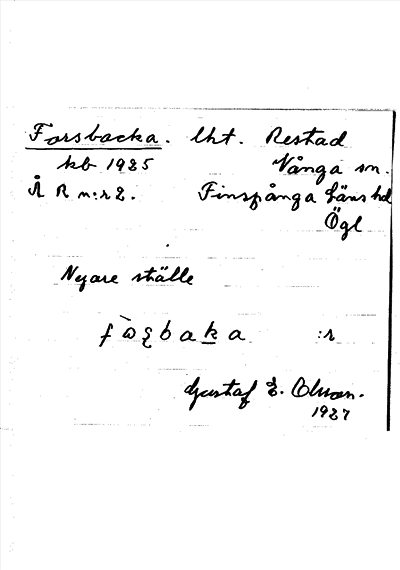 Forsbacka. lht. Restad
kb 1925 Vånga sn.
Å R n:r 2. Finspånga läns hd
Ögl
Nyare ställe
:r
Gustaf E. Olson.
1927